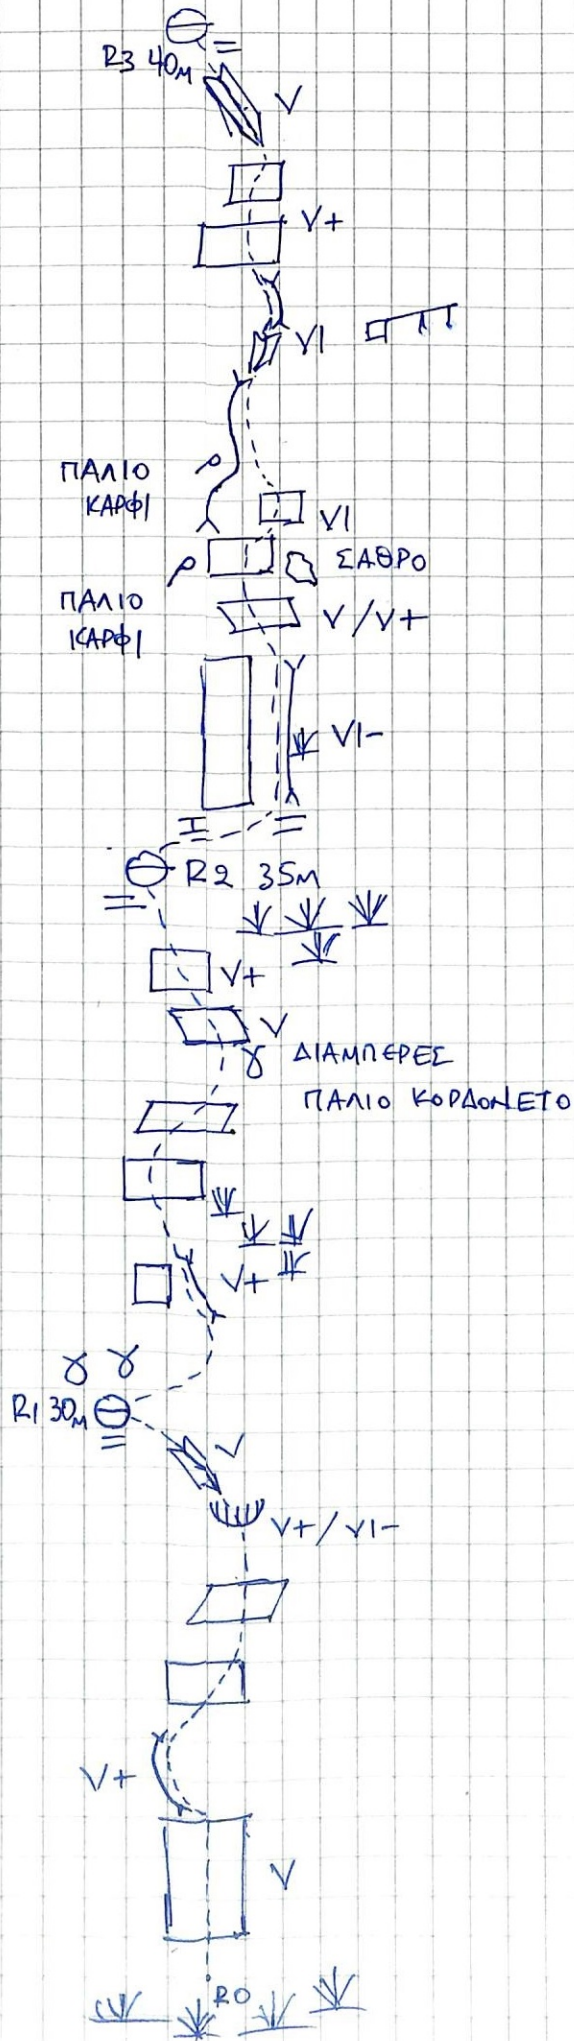 R3 40M
V
V+
VI
ΠΑΛΙΟ
ΚΑΡΦΙ
VI
ΣΑΘΡΟ
ΠΑΛΙΟ
ΚΑΡΦΙ
V/V+
VI-
R2 35M
V+
V
ΔΙΑΜΠΕΡΕΣ
ΠΑΛΙΟ ΚΟΡΔΟΝΕΤΟ
V+
R1 30M
V
V+/VI-
V+
V
R0